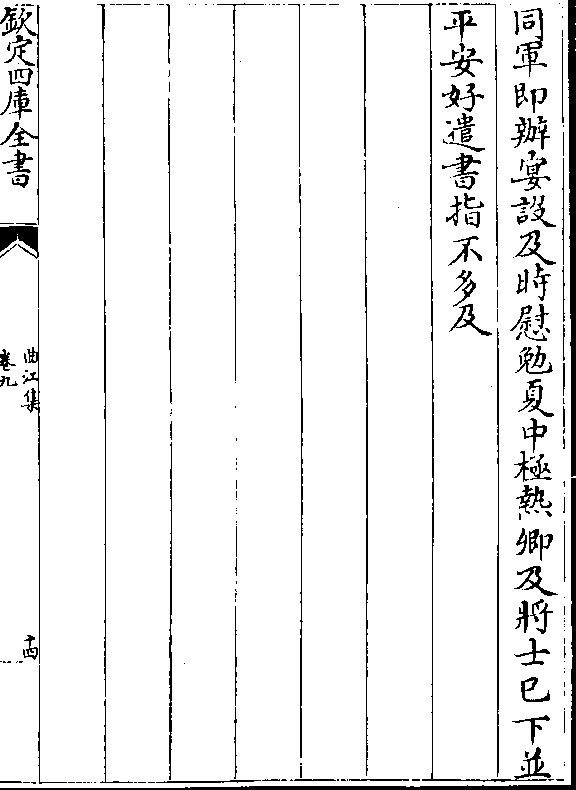 同軍即辦宴設及時慰勉夏中極熱卿及將士已下並
平安好遣書指不多及
欽定四庫全書
曲江集
卷九
十四